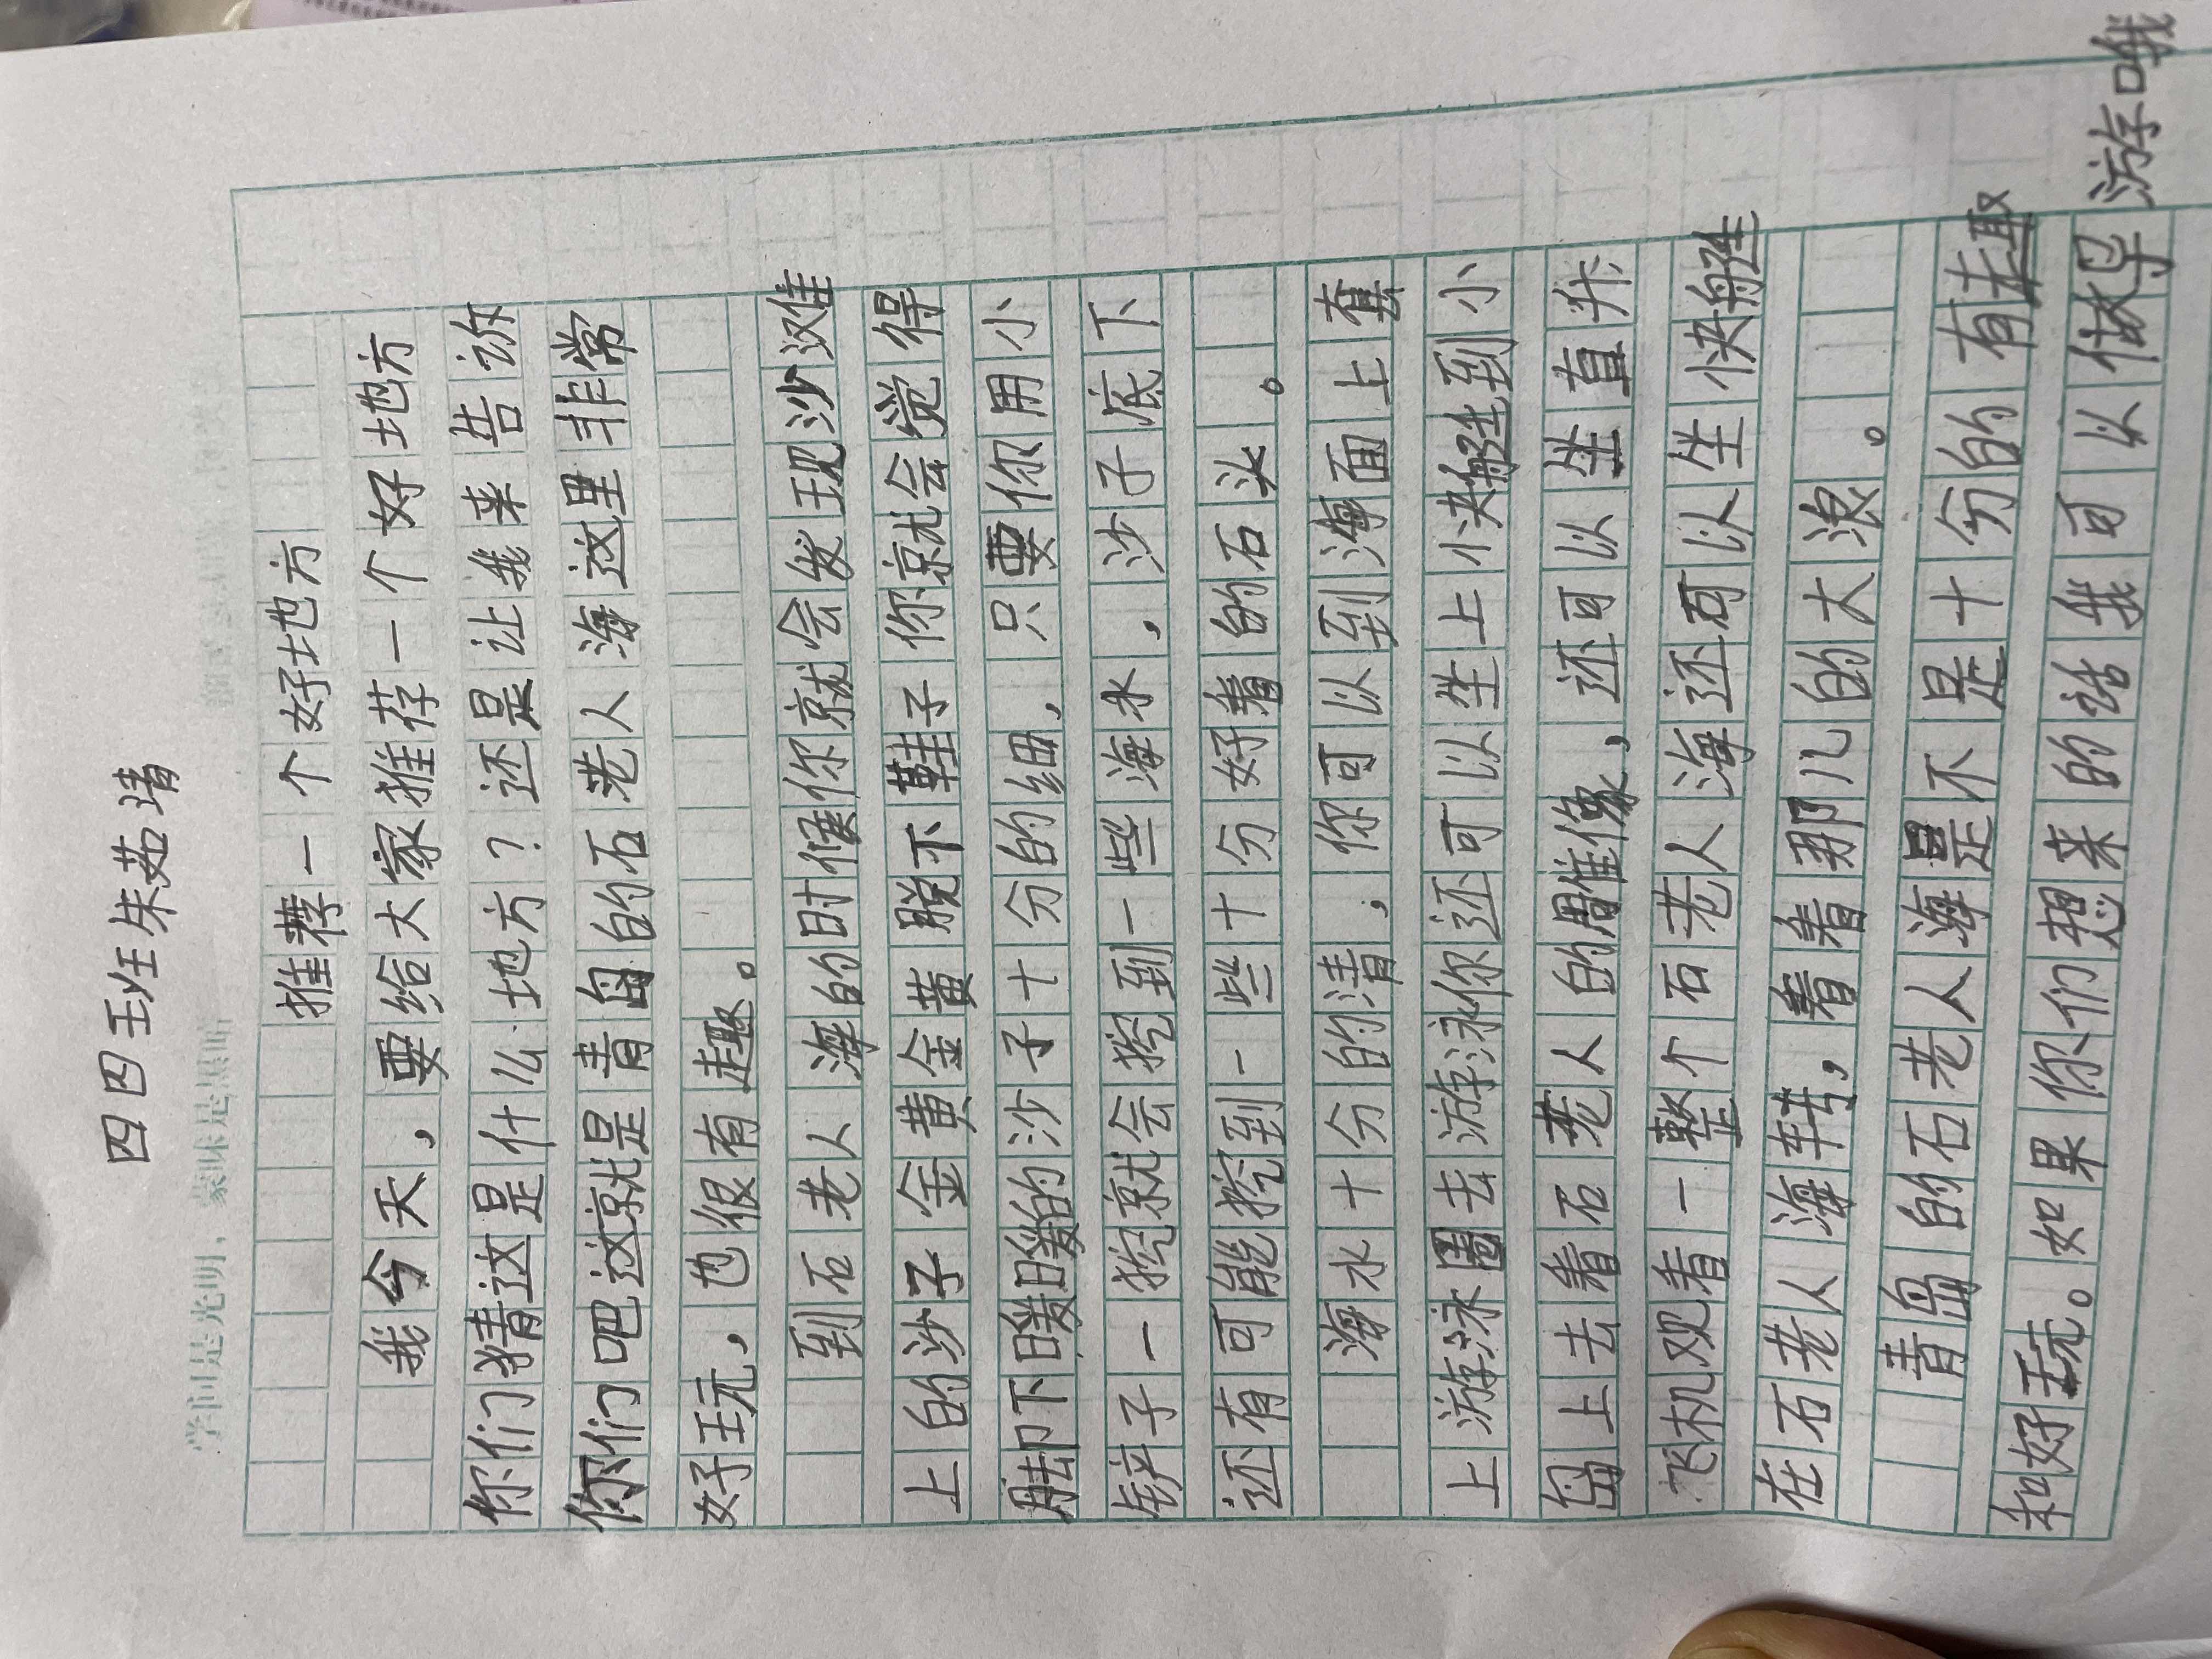 四四班朱茹靖
学问是光明，蒙昧是黑暗
推荐一个好地方
我今天，要给大家推荐一个好地方
你们猜这是什么地方？还是让我来告诉
你们吧这就是青岛的石老人海这里非常
好玩，也很有趣。
到石老人海的时候你就会发现沙汉难
上的沙子金黄金黄脱下鞋子你就会觉得
脚下暖暖的沙子十分的细，只要你用小
铲子一挖就会挖到一些海水，沙子底下
还有可能挖到一些十分好看的石头。
海水十分的清，你可以到海面上套
上游泳圈去游泳你还可以坐上小快艇到小
岛上去看石老人的雕像，还可以坐直升
飞机观看一整个石老人海还可以坐快艇
在石老人海转，看看那儿的大浪。
青岛的石老人海是不是十分的有趣
和好玩。如果你们想来的话我可以做导游哦